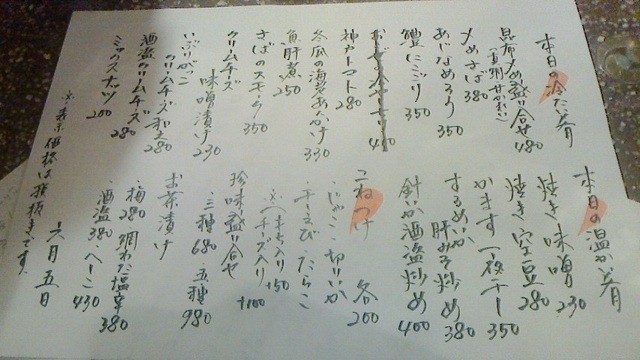 本日の冷たい肴
昆布〆め盛り合せ 480
〆めさば 380
あじなめろう 350
鱧にこごり 350
400
神戸トマト 280
冬瓜の海老あんかけ 330
魚肝煮 250
さばのスモーク 350
クリームチーズ味噌漬け 230
いぶりがっこ
クリームチーズ和え 280
酒盗クリームチーズ 280
ミックスナッツ 200
本日の温かい肴
焼き味噌 230
焼き空豆 280
かます一夜干し 350
するめいか
肝みそ炒め 380
針いか酒盗炒め 400
こねつけ 各200
・じゃこ・切りいか
・干えび・たらこ
チーズ入り +100
珍味盛り合せ
三種 680 五種 980
お茶漬け
・梅 280
・酒盗 380 へしこ 430
※表示価格は税抜きです。
六月五日